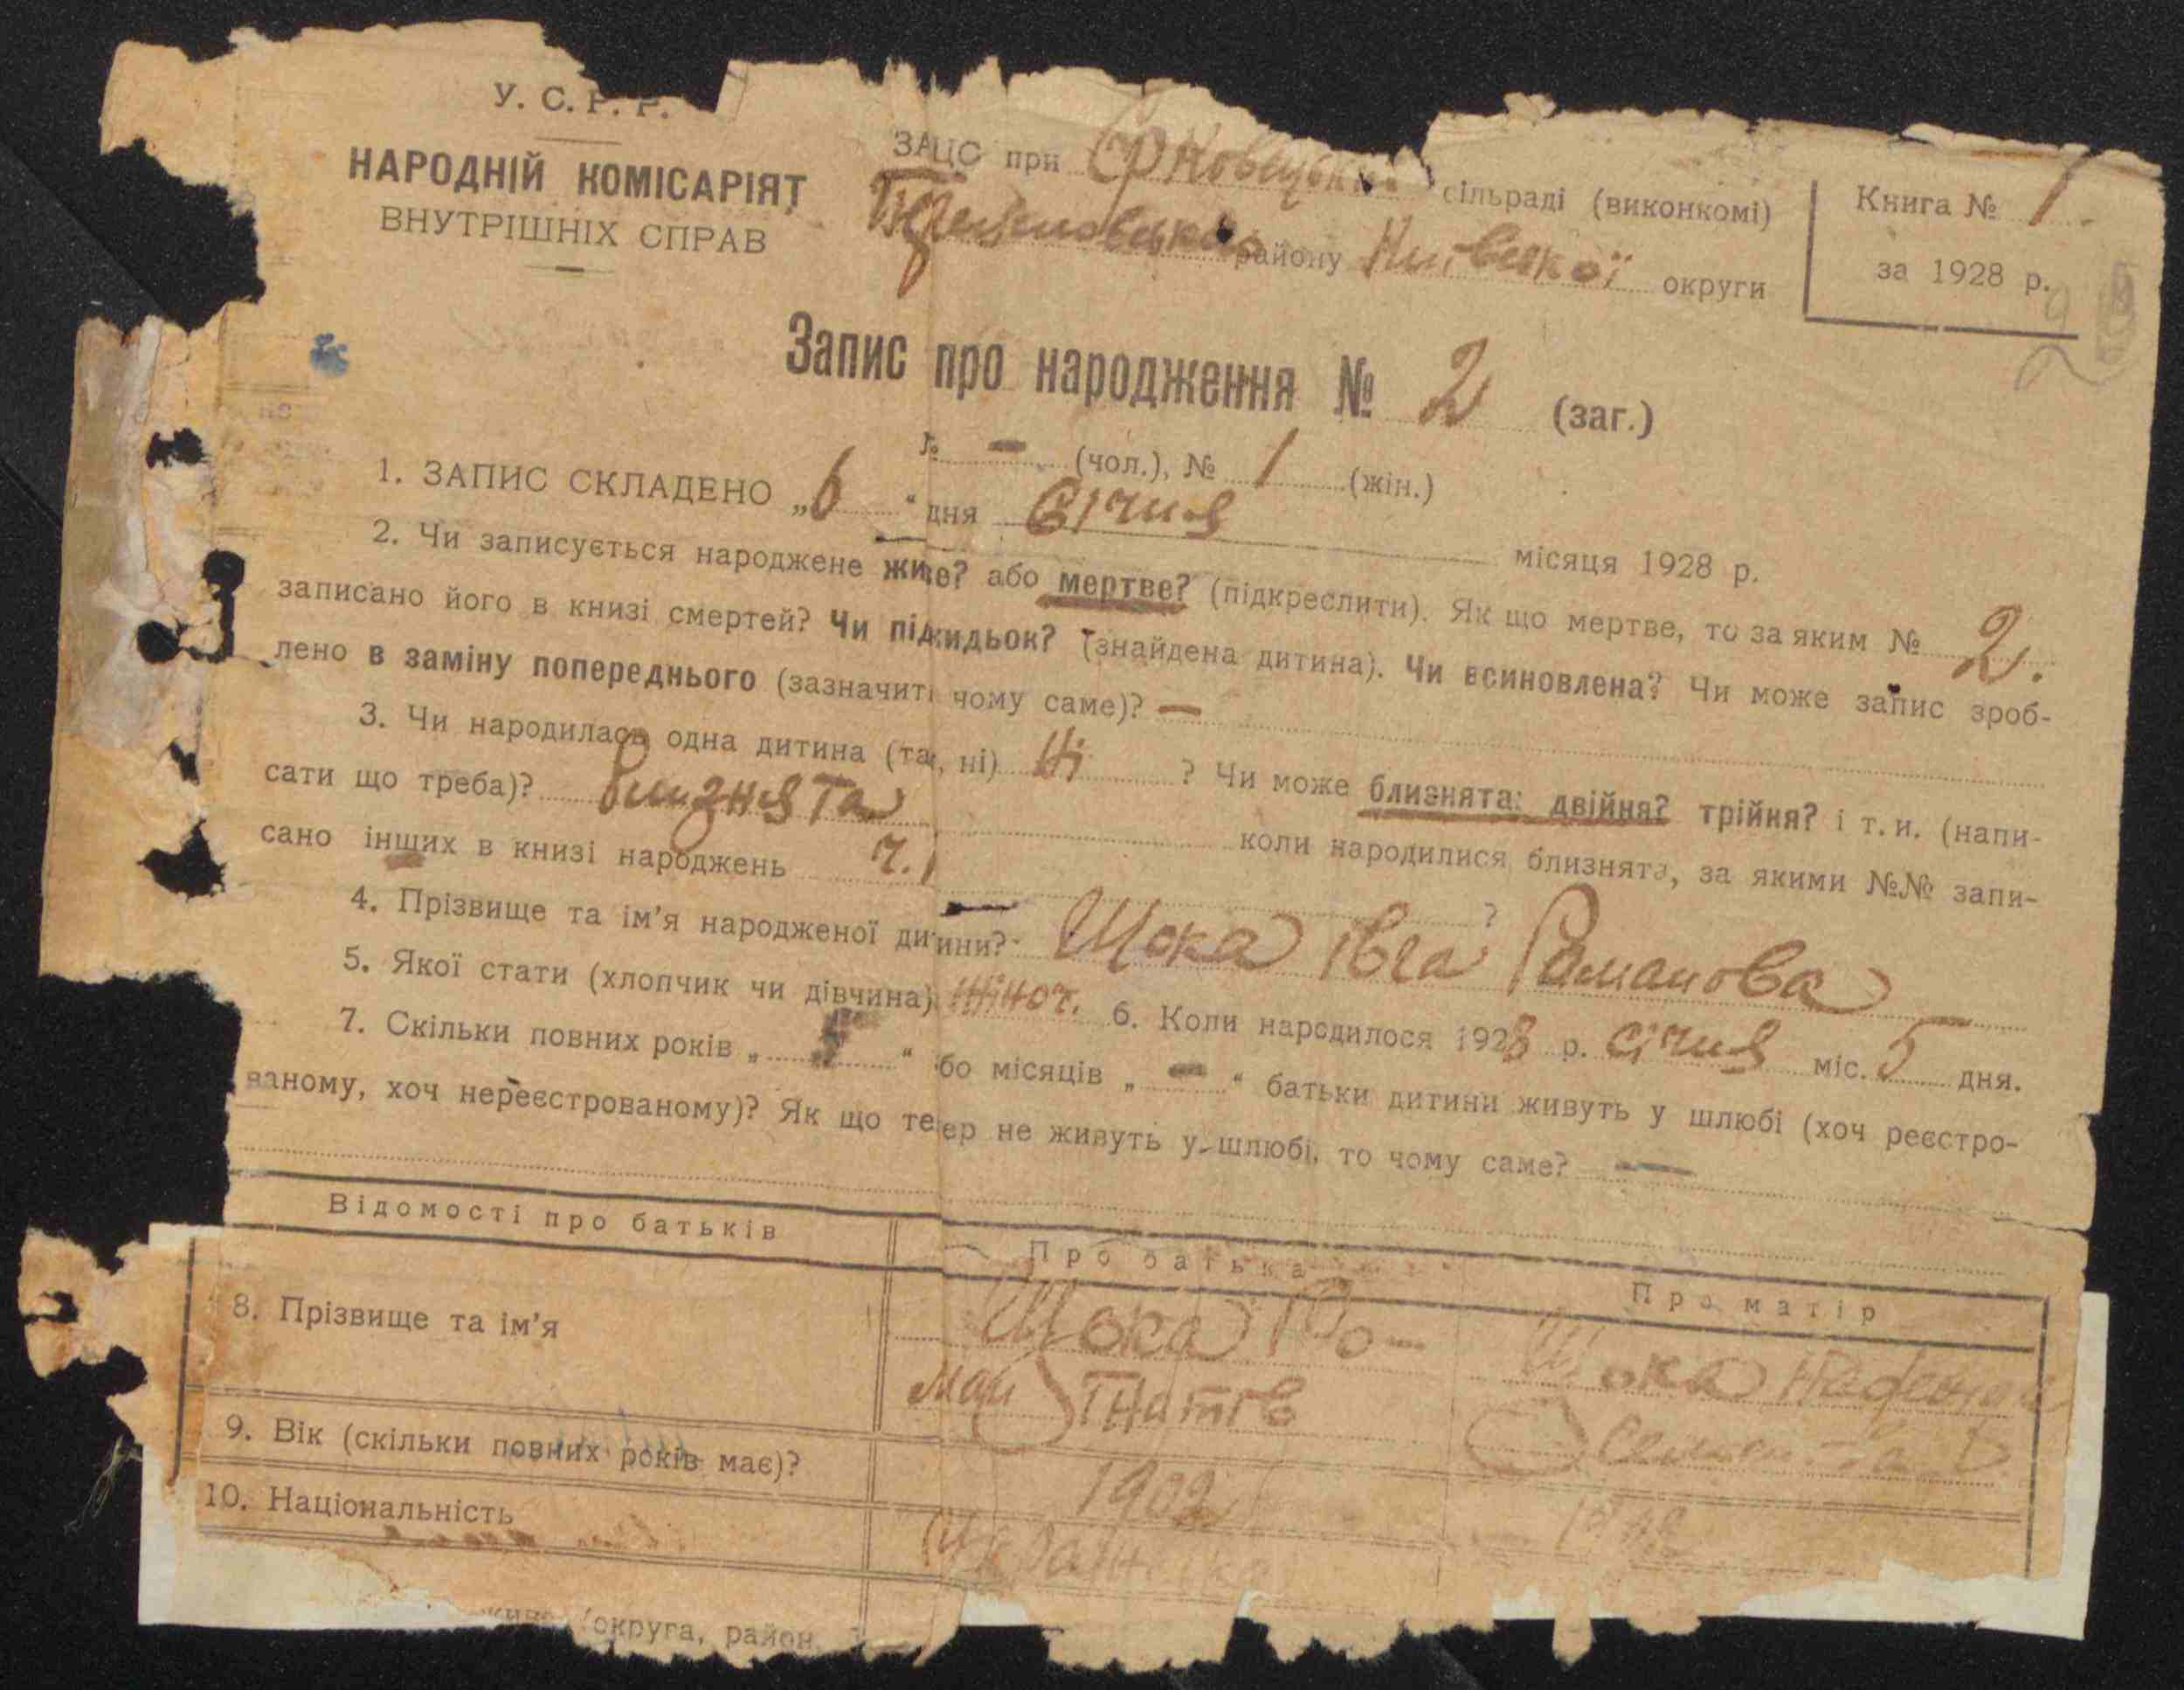 У. С. Р. Р.
НАРОДНІЙ КОМІСАРІЯТ
ВНУТРІШНІХ СПРАВ
ЗАЦС при сільраді (виконкомі)
району округи
Книга № 1.
за 1928 р.
Запис про народження № 2 (заг.)
№ — (чол.), № 1 (жін.)
1. ЗАПИС СКЛАДЕНО „6“ дня Січня місяця 1928 р.
2. Чи записується народжене живе? або мертве? (підкреслити). Як що мертве, то за яким № 2.
записано його в книзі смертей? Чи підкидьок? (знайдена дитина). Чи всиновлена? Чи може запис зроб-
лено в заміну попереднього (зазначити чому саме)? —
3. Чи народилась одна дитина (так, ні) Ні ? Чи може близнята: двійня? трійня? і т. и. (напи-
сати що треба)? Близнята коли народилися близнята, за якими №№ запи-
сано інших в книзі народжень ч. 1 ?
4. Прізвище та ім'я народженої дитини? Щока Івга Романова
5. Якої стати (хлопчик чи дівчина) жіноч. 6. Коли народилося 1928 р. Січня міс. 5 дня.
7. Скільки повних років „ “ або місяців „ — “ батьки дитини живуть у шлюбі (хоч реєстро-
ваному, хоч нереєстрованому)? Як що тепер не живуть у шлюбі, то чому саме? —
Відомості про батьків Про батька Про матір
8. Прізвище та ім'я Щока Ро-
ман Гнатів
Щока
9. Вік (скільки повних років має)? 1902
10. Національність
(округа, район,